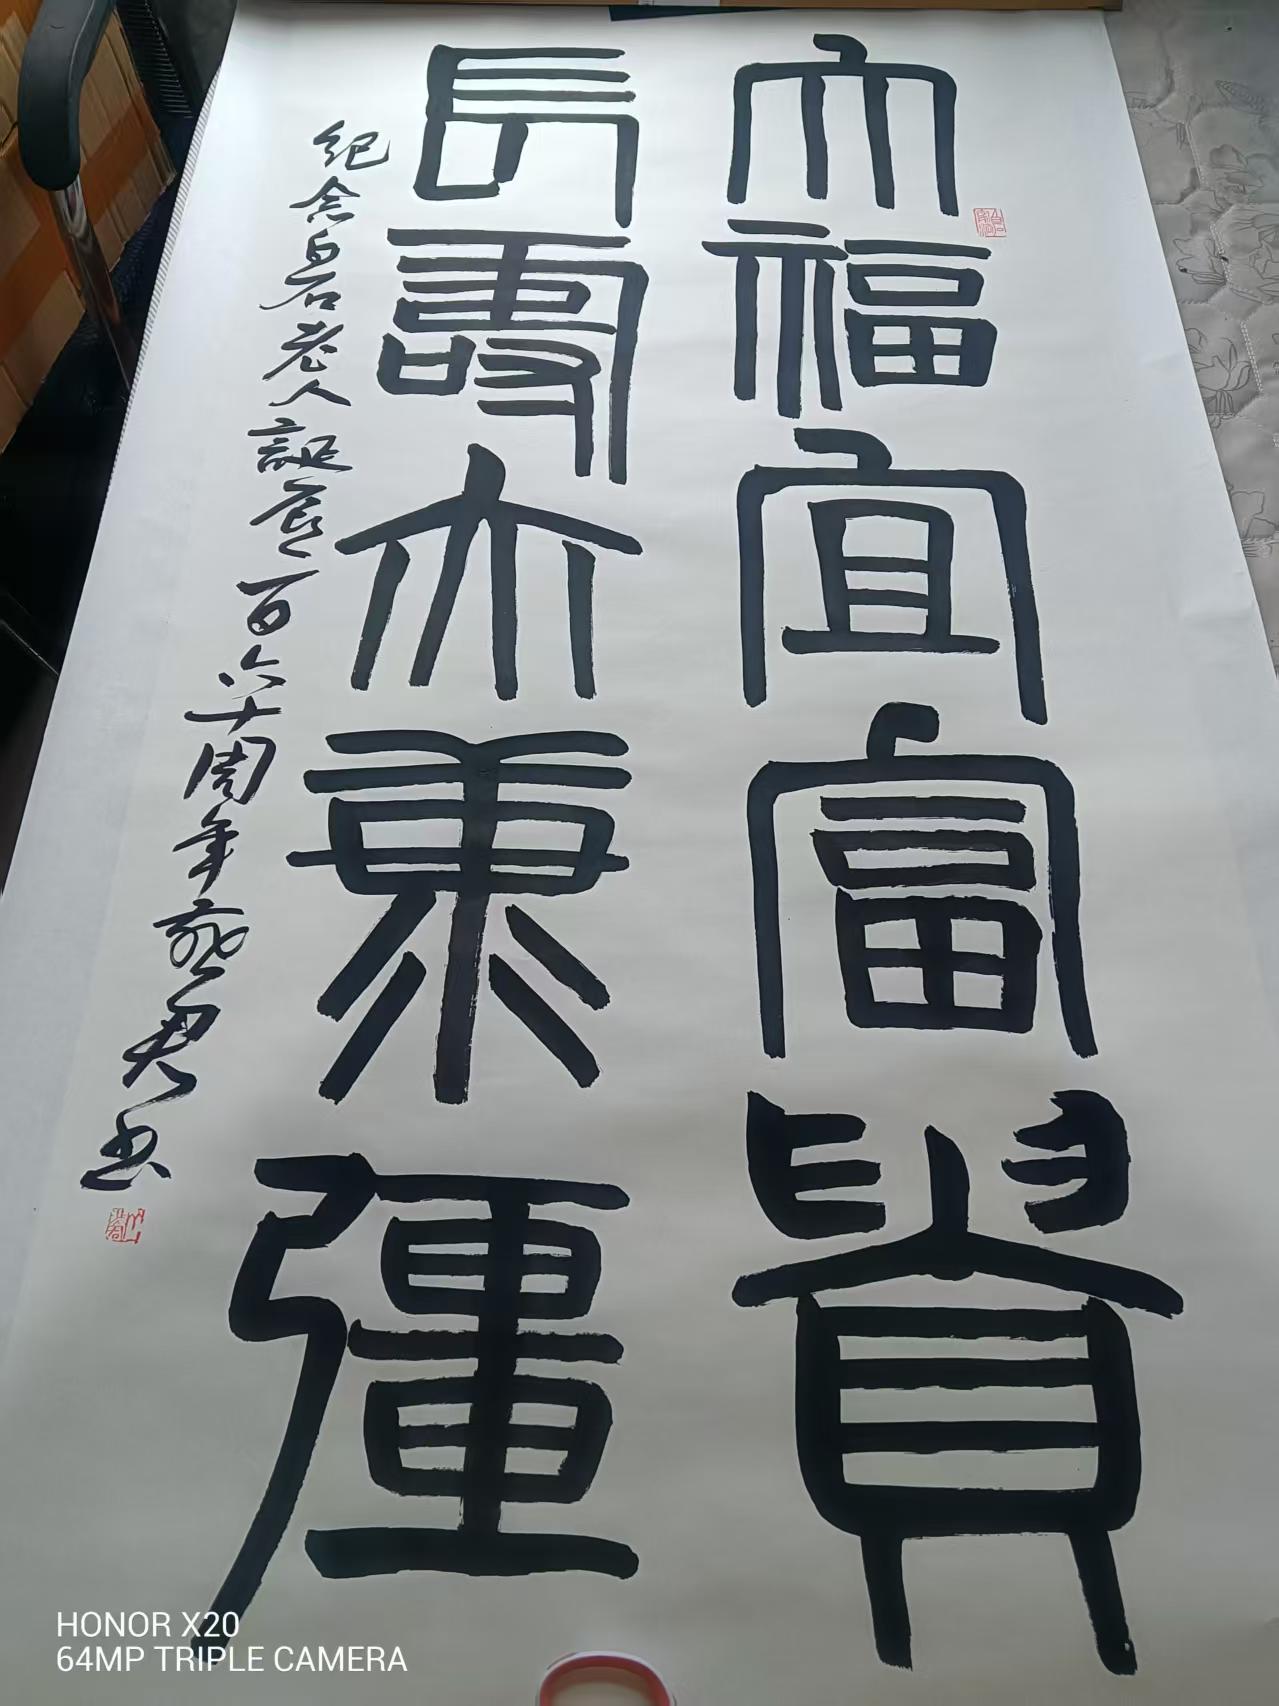 大福宜富貴
長壽亦兼彊
紀念白石老人誕辰百六十周年君书
HONOR X20
64MP TRIPLE CAMERA